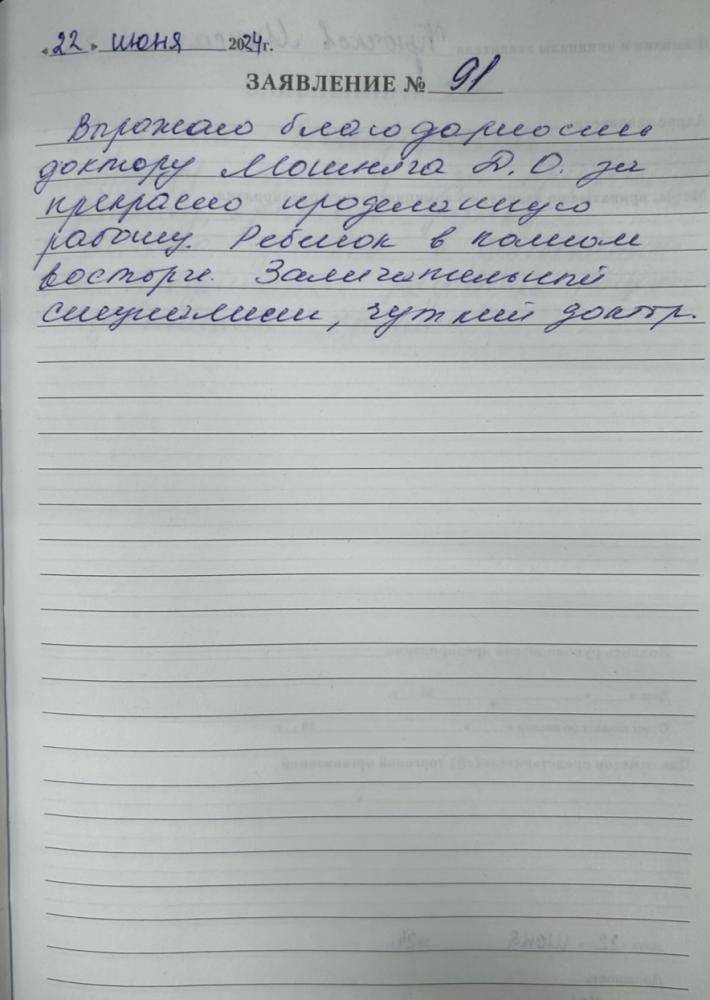 « 22 » июня 2024 г.
ЗАЯВЛЕНИЕ № 91
Выражаю благодарность
доктору Мошняга Д. О. за
прекрасно проделанную
работу. Ребенок в полном
восторге. Замечательный
специалист, чуткий доктор.